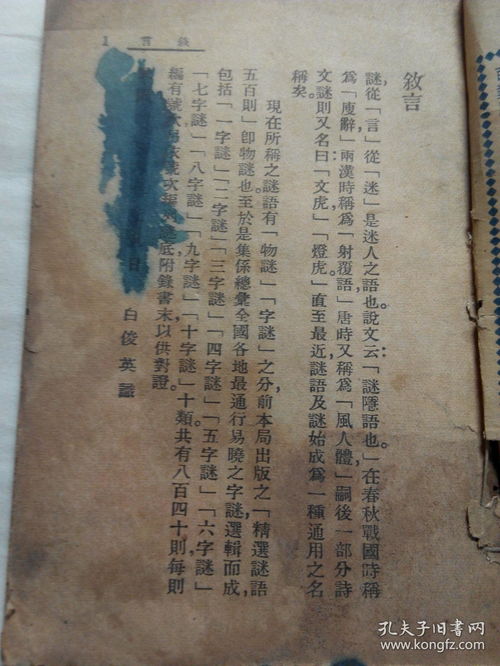 敘言
1
敘言
謎,從「言」從「迷」是迷人之語也。說文云:「謎隱語也。」在春秋戰國時稱
爲「廋辭」兩漢時稱爲「射覆語」唐時又稱爲「風人體」嗣後一部分詩
文謎則又名曰:「文虎」「燈虎」直至最近,謎語及謎始成爲一種通用之名
稱矣。
現在所稱之謎語有「物謎」「字謎」之分,前本局出版之「精選謎語
五百則」卽物謎也。至於是集係總彙全國各地最通行易曉之字謎,選輯而成,
包括「一字謎」「二字謎」「三字謎」「四字謎」「五字謎」「六字謎」
「七字謎」「八字謎」「九字謎」「十字謎」十類。共有八百四十則,每則
編有號次,底附錄書末,以供對證。
白俊英識
孔夫子旧书网
www.kongfz.com